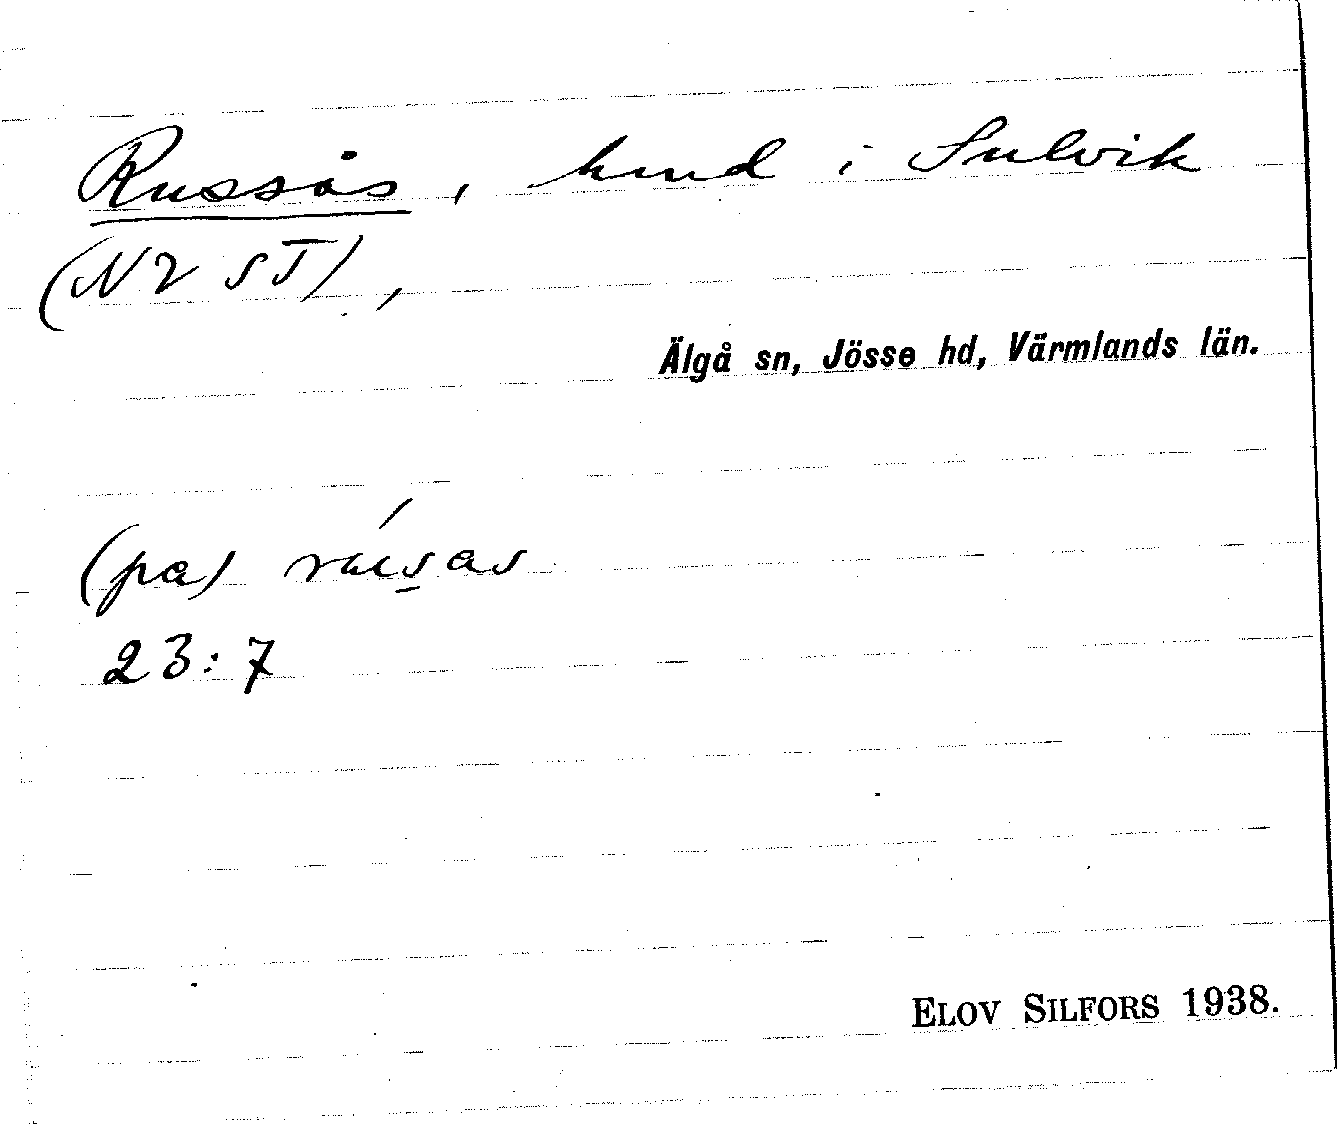 Russås, hmd i Sulvik
(NV ST),
Älgå sn, Jösse hd, Värmlands län.
(pa) rusas
23:7
ELOV SILFORS 1938.